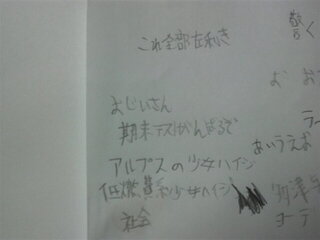 これ全部左利き
驚く
お お
まじいさん
期末テストがんばるぞ
ラー
あいうえお
アルプスの少女ハイジ
低燃費系少女ヘイジ
社会
コーデ